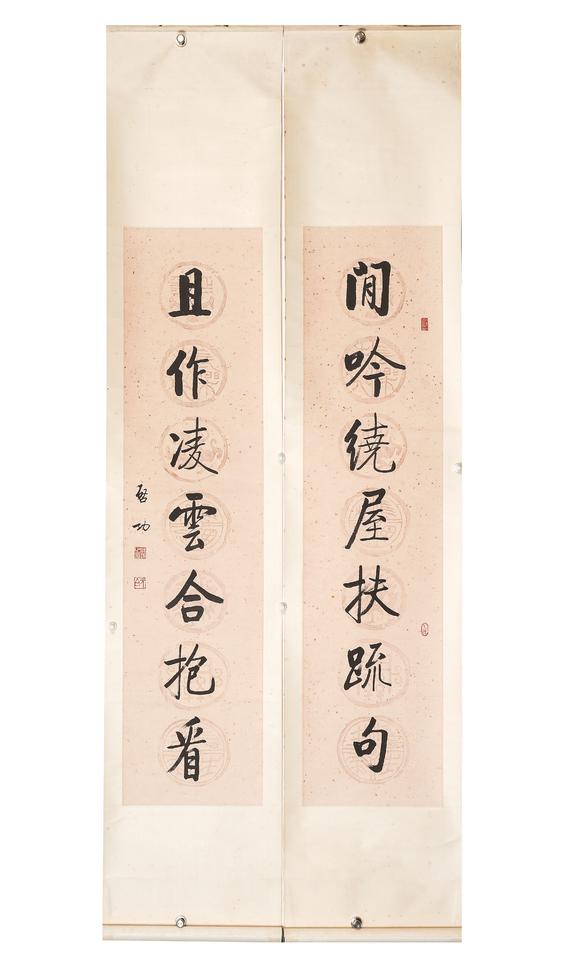 閒吟繞屋扶疏句
且作凌雲合抱看
啓功